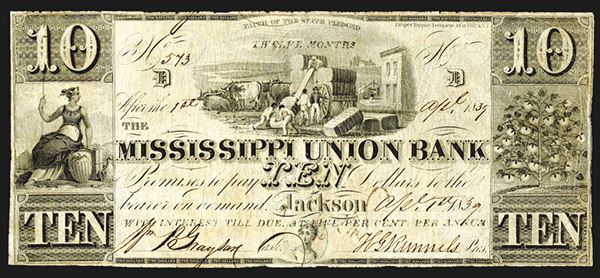 FAITH OF THE STATE PLEDGED
Draper, Toppan, Longacre & Co. Phila. & N.Y.
10
TWELVE MONTHS
10
No 573
No
D
D
after the 1st
apl. 1839
THE
MISSISSIPPI UNION BANK
Promises to pay TEN Dollars to the
bearer on demand. Jackson
1839
WITH INTEREST TILL DUE, AT FIVE PER CENT. PER ANNUM
TEN
Cashr.
H G Runnels Pres.
TEN